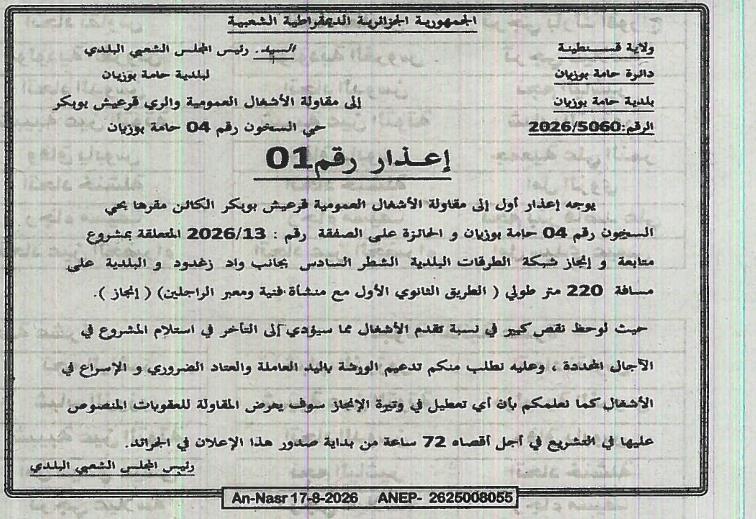 الجمهورية الجزائرية الديمقراطية الشعبية
ولاية قسنطينة
السيد. رئيس المجلس الشعبي البلدي
دائرة حامة بوزيان
لبلدية حامة بوزيان
بلدية حامة بوزيان
إلى مقاولة الأشغال العمومية والري قرعيش بوبكر
الرقم:2026/5060
حي السخون رقم 04 حامة بوزيان
إعذار رقم01
يوجه إعذار أول إلى مقاولة الأشغال العمومية قرعيش بوبكر الكائن مقرها بحي
السخون رقم 04 حامة بوزيان و الحائزة على الصفقة رقم : 2026/13 المتعلقة بمشروع
متابعة و إنجاز شبكة الطرقات البلدية الشطر السادس بجانب واد زغدود و البلدية على
مسافة 220 متر طولي ( الطريق الثانوي الأول مع منشأة فنية ومعبر الراجلين) ( إنجاز ).
حيث لوحظ نقص كبير في نسبة تقدم الأشغال مما سيؤدي إلى التأخر في استلام المشروع في
الآجال المحددة ، وعليه نطلب منكم تدعيم الورشة باليد العاملة والعتاد الضروري و الإسراع في
الأشغال كما نعلمكم بأن أي تعطيل في وتيرة الإنجاز سوف يعرض المقاولة للعقوبات المنصوص
عليها في التشريع في أجل أقصاه 72 ساعة من بداية صدور هذا الإعلان في الجرائد.
رئيس المجلس الشعبي البلدي
An-Nasr 17-8-2026 ANEP- 2625008055